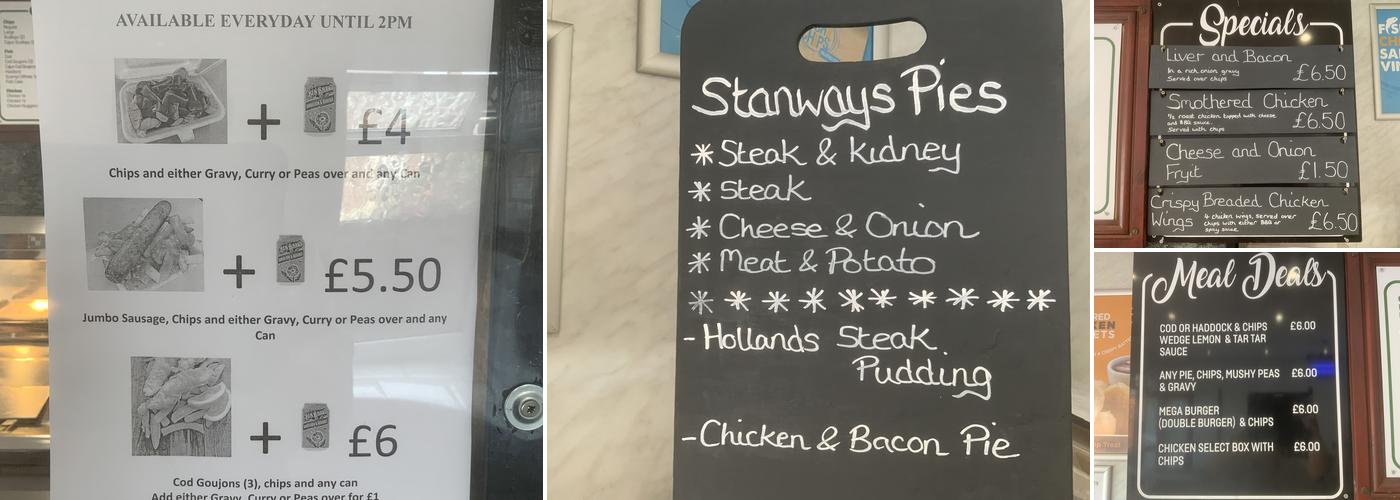 AVAILABLE EVERYDAY UNTIL 2PM
+ £4
Chips and either Gravy, Curry or Peas over and any Can
+ £5.50
Jumbo Sausage, Chips and either Gravy, Curry or Peas over and any
Can
+ £6
Cod Goujons (3), chips and any can
Add either Gravy, Curry or Peas over for £1
Stanways Pies
* Steak & kidney
* Steak
* Cheese & Onion
* Meat & Potato
* * * * * * * * * *
- Hollands Steak
Pudding
- Chicken & Bacon Pie
Specials
Liver and Bacon
In a rich onion gravy
Served over chips
£6.50
Smothered Chicken
½ roast chicken topped with cheese
and BBQ sauce.
Served with chips
£6.50
Cheese and Onion
Fryit £1.50
Crispy Breaded Chicken
Wings
4 chicken wings, served over
chips with either BBQ or
spicy sauce.
£6.50
Meal Deals
COD OR HADDOCK & CHIPS £6.00
WEDGE LEMON & TAR TAR
SAUCE
ANY PIE, CHIPS, MUSHY PEAS £6.00
& GRAVY
MEGA BURGER £6.00
(DOUBLE BURGER) & CHIPS
CHICKEN SELECT BOX WITH £6.00
CHIPS